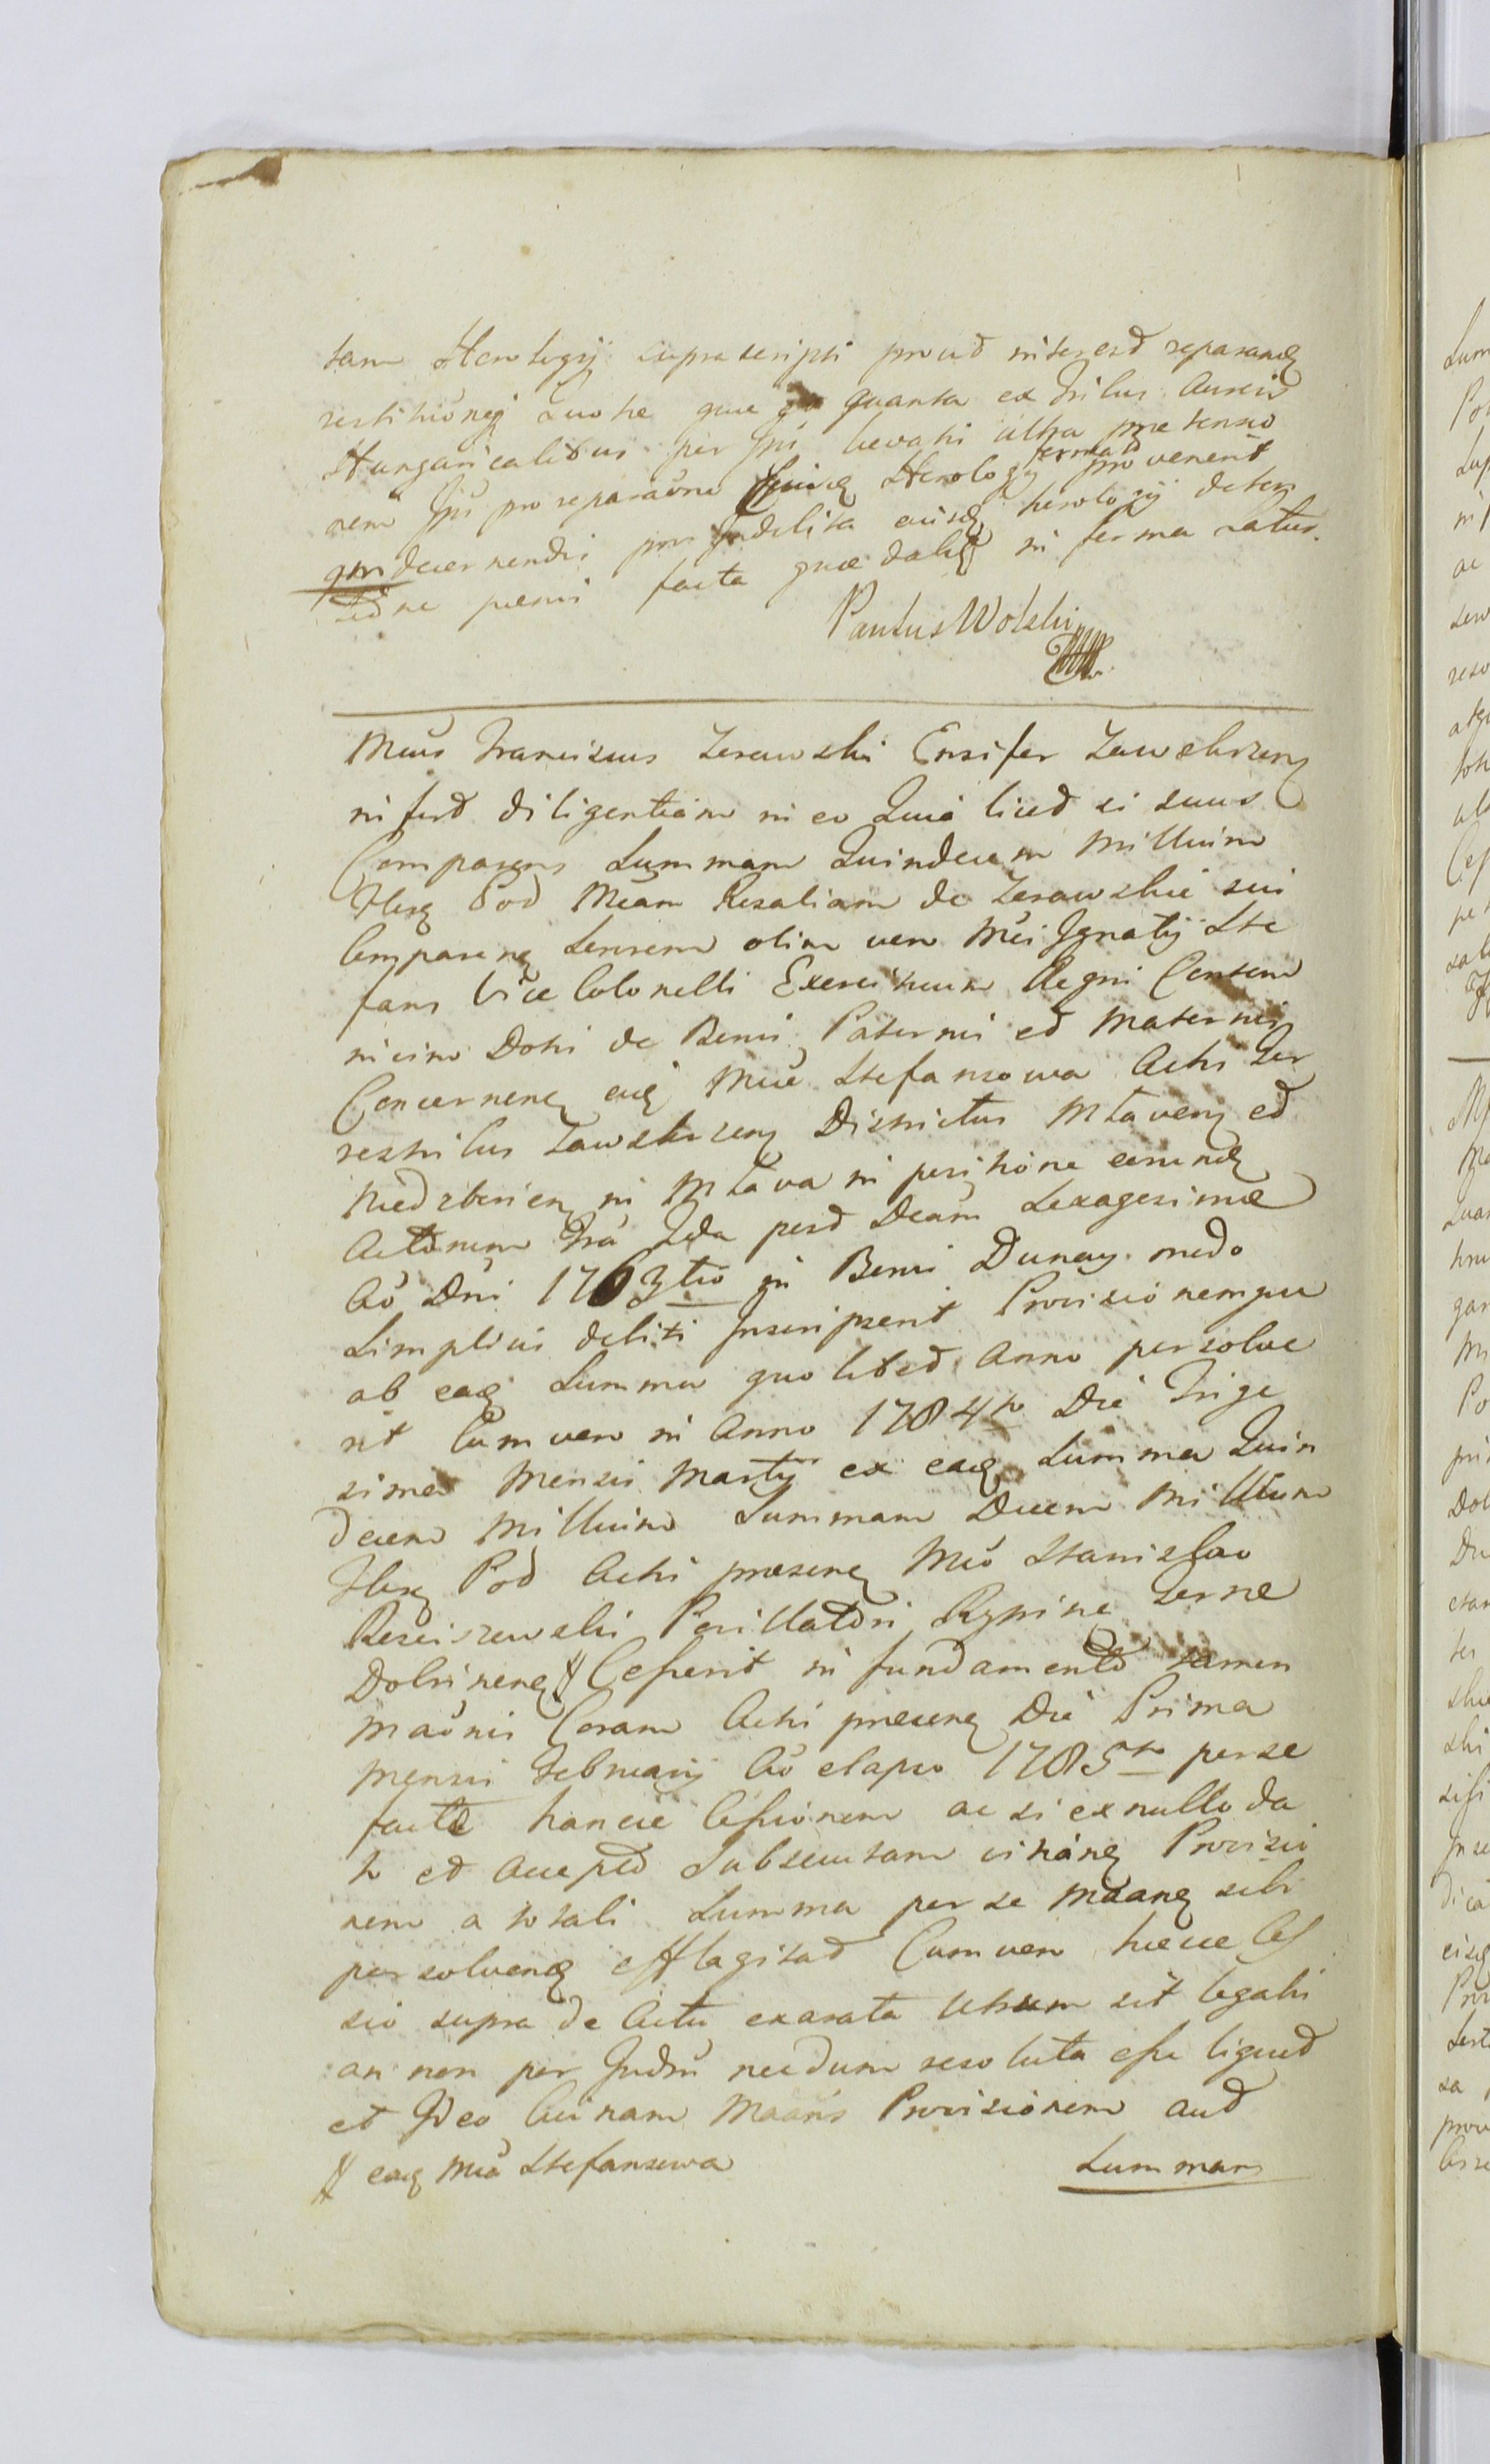 tam Horologij suprascripti prout interest reparanđ
restitúoneq Quote quae quanta ex tribus Aureis
Hungaricalibus per Ips levatis ultra praetensio
nem Ips pro reparaóne Horologij formať provenerit
decernendis pro Indebita eiusđ horologij deten
tióne paenis facta quae dabiť in forma Latius.
Paulus Wolski
Mcús Franciscus Zerawski Ensifer Zawskrzenſ
infert diligentiam in eo Quia licet is suus
Comparens Summam Quindecem Millium
flrenſ Pol Mcám Rosaliam de Zerawskie sui
Comparenť Sororem olim vero Mcí Ignatij Ste
fans Vice Colonelli Exercituum Regni Consem
nicino Dotis de Bonis Paternis et Maternis
Concernenť eiđ Mcáe Stefansowa Actis Ter
restribus Zawskrzenſ Districtus Mlavenſ et
Niedzborienſ in Mlava in positione eorunđ
Actorum Fra 2da post Dcám Sexagesimae
Aó Dni 1763tio in Bonis Dunay modo
Simplicis debiti Inscripserit Provisionemque
ab eađ Summa quolibet Anno persolve
rit Cum vero in Anno 1784to Die Trige
sima Mensis Martij ex eađ Summa Quin
decem Millium Summam Decem Millium
flrenſ Pol Actis praesenť Mcó Stanislao
Rosciszewski Pocillatori Rypinenſ Terrae
Dobrinenſ # Cesserit in fundamento tamen
maónis Coram Actis praesenť Die Prima
Mensis Februarij Aó elapso 1785to per se
facto hancce Cessionem ac si ex nullo da
to et accepto Subsecutam vitánť Provisio
nem a totali Summa per se Mdanť sibi
persolvenđ efflagitat Cum vero haecce Ces
sio supra de Actu exarata Utrum sit legalis
an non per Judm necdum resoluta esse liquet
et Ideo Cuinam Maans Provisionem aut
# eađ Mcá Stefansowa
Summam